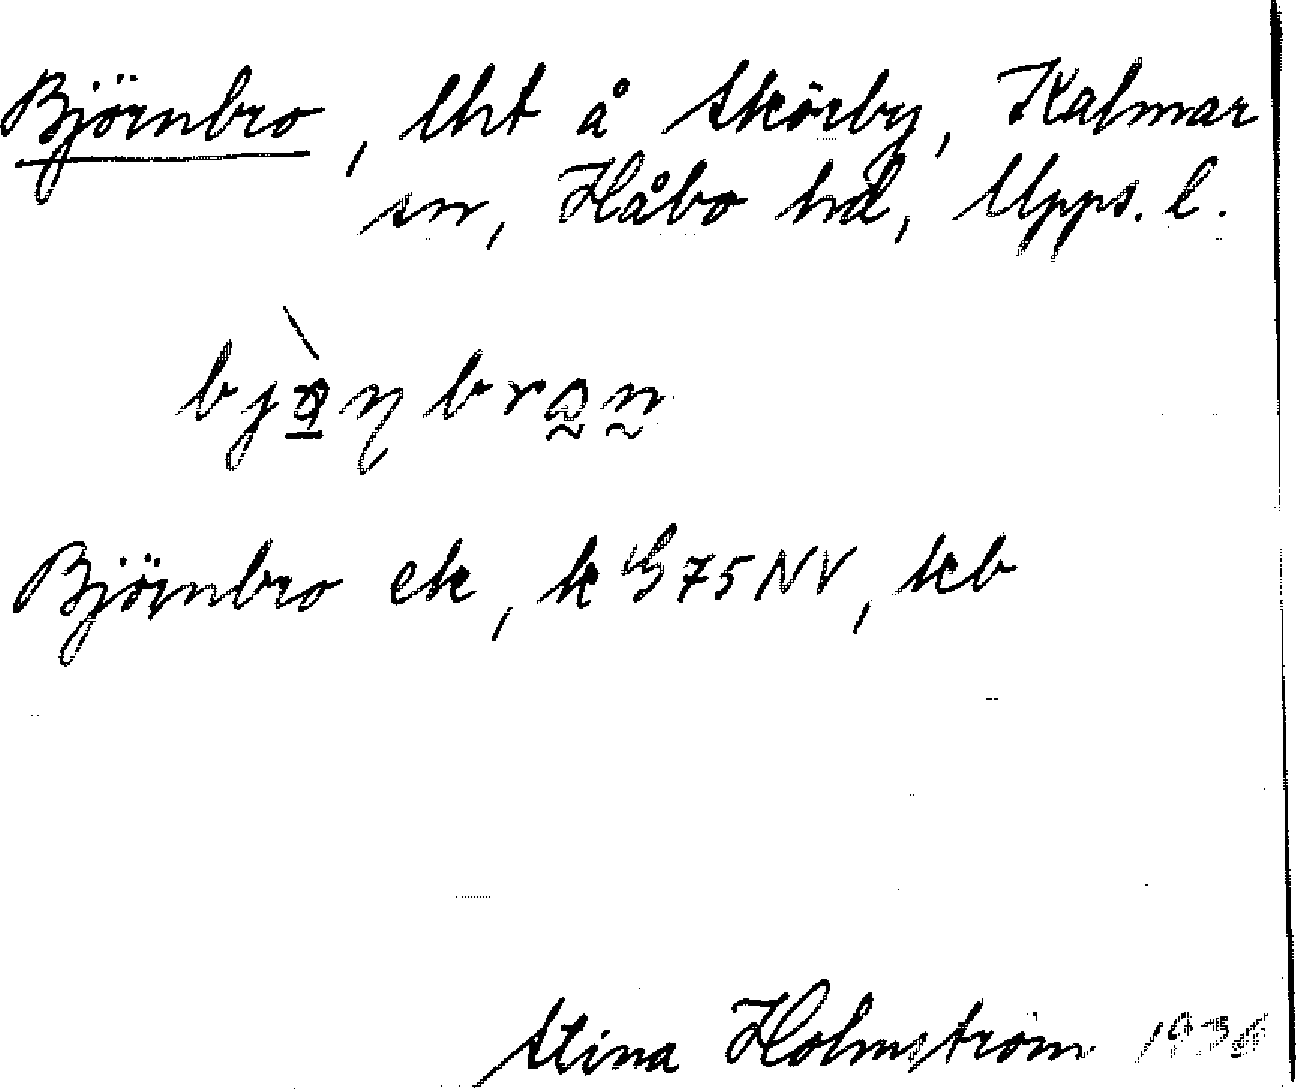 Björnbro, lht å Skörby, Kalmar
sn, Håbo hd, Upps. l.
Björnbro ek, k G75NV, kb
Stina Holmström